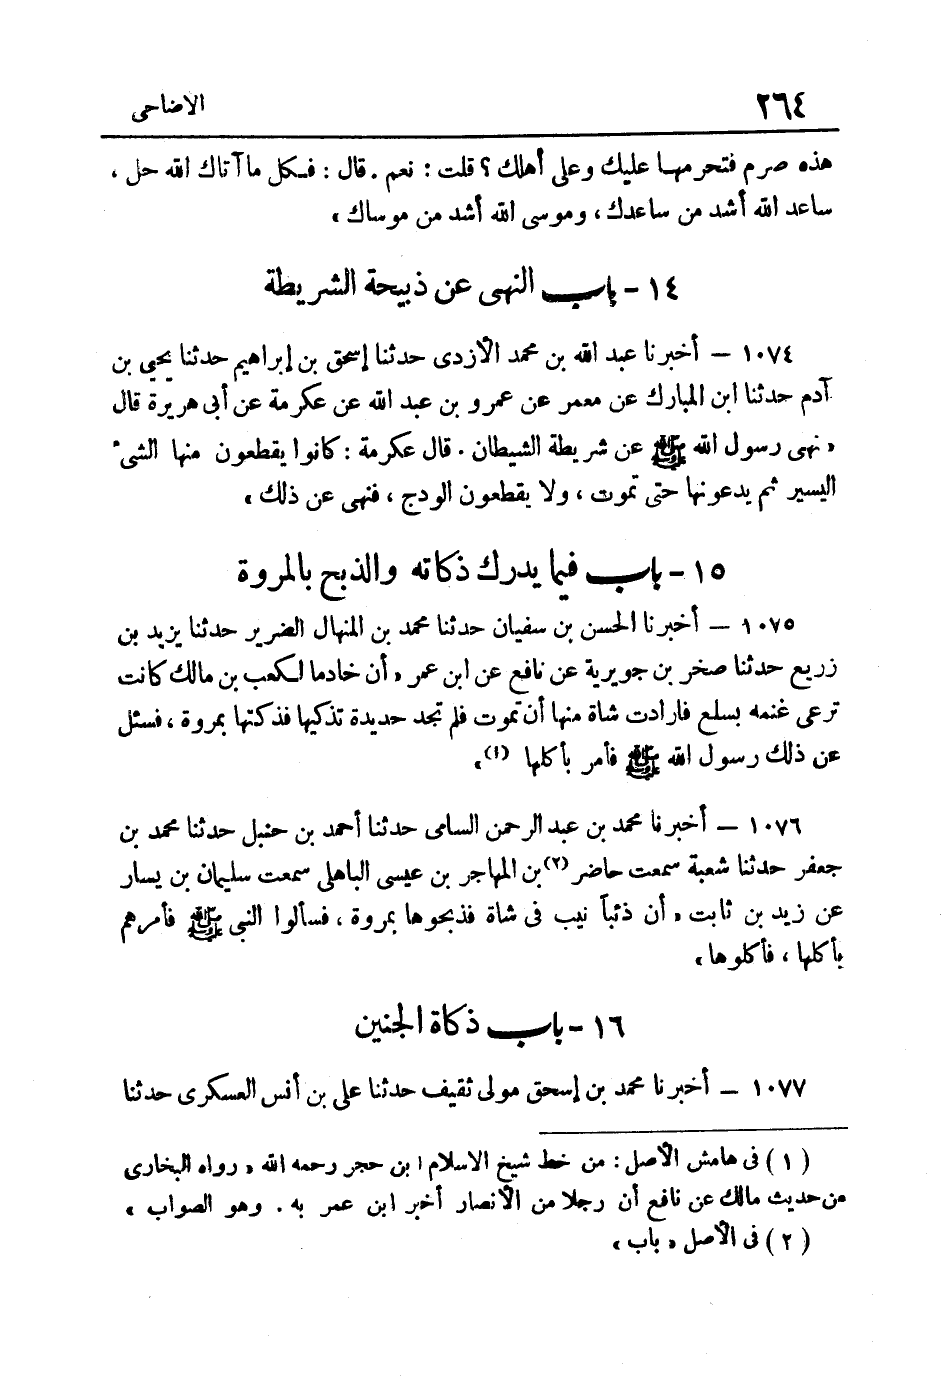 ٢٦٤ الاضاحى
هذه صرم فتحرمها عليك وعلى أهلك ؟ قلت : نعم . قال : فكل ما آتاك الله حل ،
ساعد الله أشد من ساعدك ، وموسى الله أشد من موساك »
١٤ - باب النهى عن ذبيحة الشريطة
١٠٧٤ – أخبرنا عبد الله بن محمد الأزدى حدثنا إسحق بن إبراهيم حدثنا يحيى بن
آدم حدثنا ابن المبارك عن معمر عن عمرو بن عبد الله عن عكرمة عن أبى هريرة قال
« نهى رسول الله ﷺ عن شريطة الشيطان . قال عكرمة : كانوا يقطعون منها الشىء
اليسير ثم يدعونها حتى تموت ، ولا يقطعون الودج ، فنهى عن ذلك »
١٥ - باب فيما يدرك ذكاته والذبح بالمروة
١٠٧٥ – أخبرنا الحسن بن سفيان حدثنا محمد بن المنهال الضرير حدثنا يزيد بن
زريع حدثنا صخر بن جويرية عن نافع عن ابن عمر « أن خادما لكعب بن مالك كانت
ترعى غنمه بسلع فارادت شاة منها أن تموت فلم تجد حديدة تذكيها فذكتها بمروة ، فسئل
عن ذلك رسول الله ﷺ فأمر بأكلها (١) »
١٠٧٦ – أخبرنا محمد بن عبد الرحمن السامى حدثنا أحمد بن حنبل حدثنا محمد بن
جعفر حدثنا شعبة سمعت حاضر (٢) بن المهاجر بن عيسى الباهلى سمعت سليمان بن يسار
عن زيد بن ثابت « أن ذئباً نيب فى شاة فذبحوها بمروة ، فسألوا النبى ﷺ فأمرهم
بأكلها ، فأكلوها »
١٦ - باب ذكاة الجنين
١٠٧٧ – أخبرنا محمد بن إسحق مولى ثقيف حدثنا على بن أنس العسكرى حدثنا
( ١ ) فى هامش الأصل : من خط شيخ الاسلام ابن حجر رحمه الله « رواه البخارى
من حديث مالك عن نافع أن رجلا من الأنصار أخبر ابن عمر به . وهو الصواب »
( ٢ ) فى الأصل « باب »